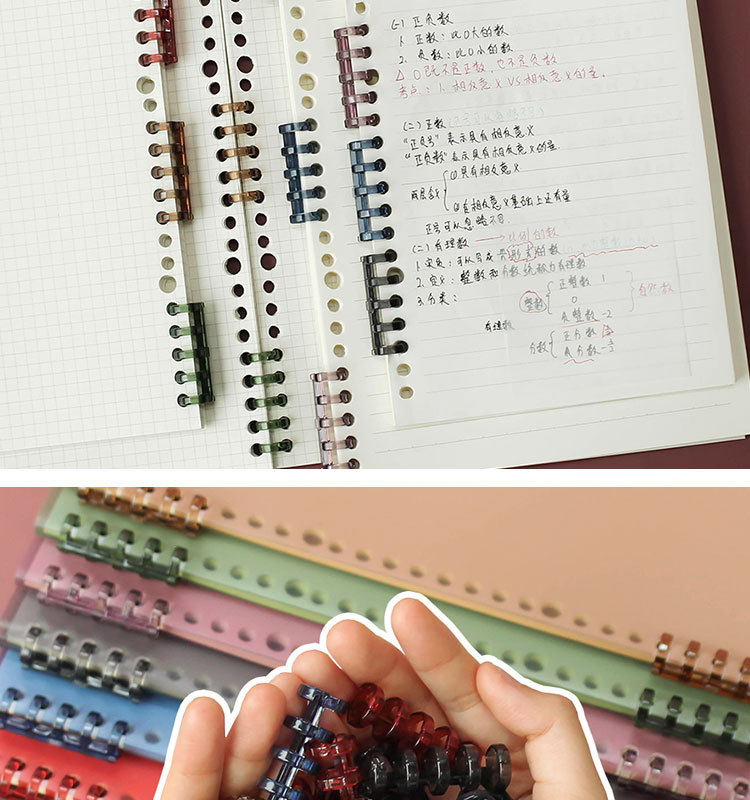 (一) 正负数
1. 正数:比0大的数
2. 负数:比0小的数
△ 0既不是正数,也不是负数
考点:1. 相反意义 VS 相反意义的量.
(二) 正数
"正负号"表示具有相反意义
"正负数"表示具有相反意义的量
两层含义
①具有相反意义
②在相反意义基础上还有量
正号可以忽略不写.
(二) 有理数 → 比例的数
1. 实质:可以写成 形式的数
2. 定义:整数和分数统称为有理数
3. 分类:
有理数
整数
正整数 1
0
负整数 -2
自然数
分数
正分数
负分数 -